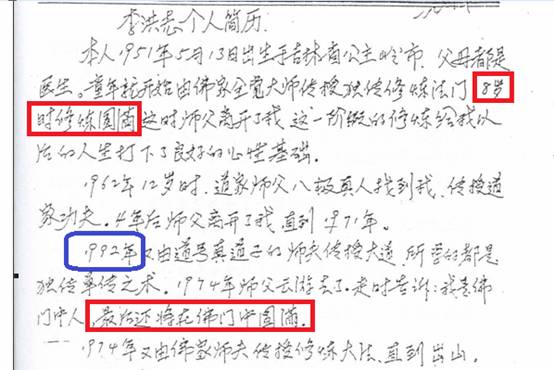 李洪志个人简历.
本人1951年5月13日出生于吉林省公主岭市,父母都是
医生。童年开始由佛家全觉大师传授独传修炼法门 8岁
时修炼圆满 这时师父离开了我 这一阶段的修炼给我以
后的人生打下了良好的心性基础.
1962年12岁时,道家师父八极真人找到我,传授道
家功夫。4年后师父离开了我,直到1971年。
1992年又由道号真道子的师夫传授大道,所学的都是
独传单传之术。1974年师父云游去了.走时告诉:我是佛
门中人,最后还将在佛门中圆满.
1974年又由佛家师夫传授修炼大法,直到出山.